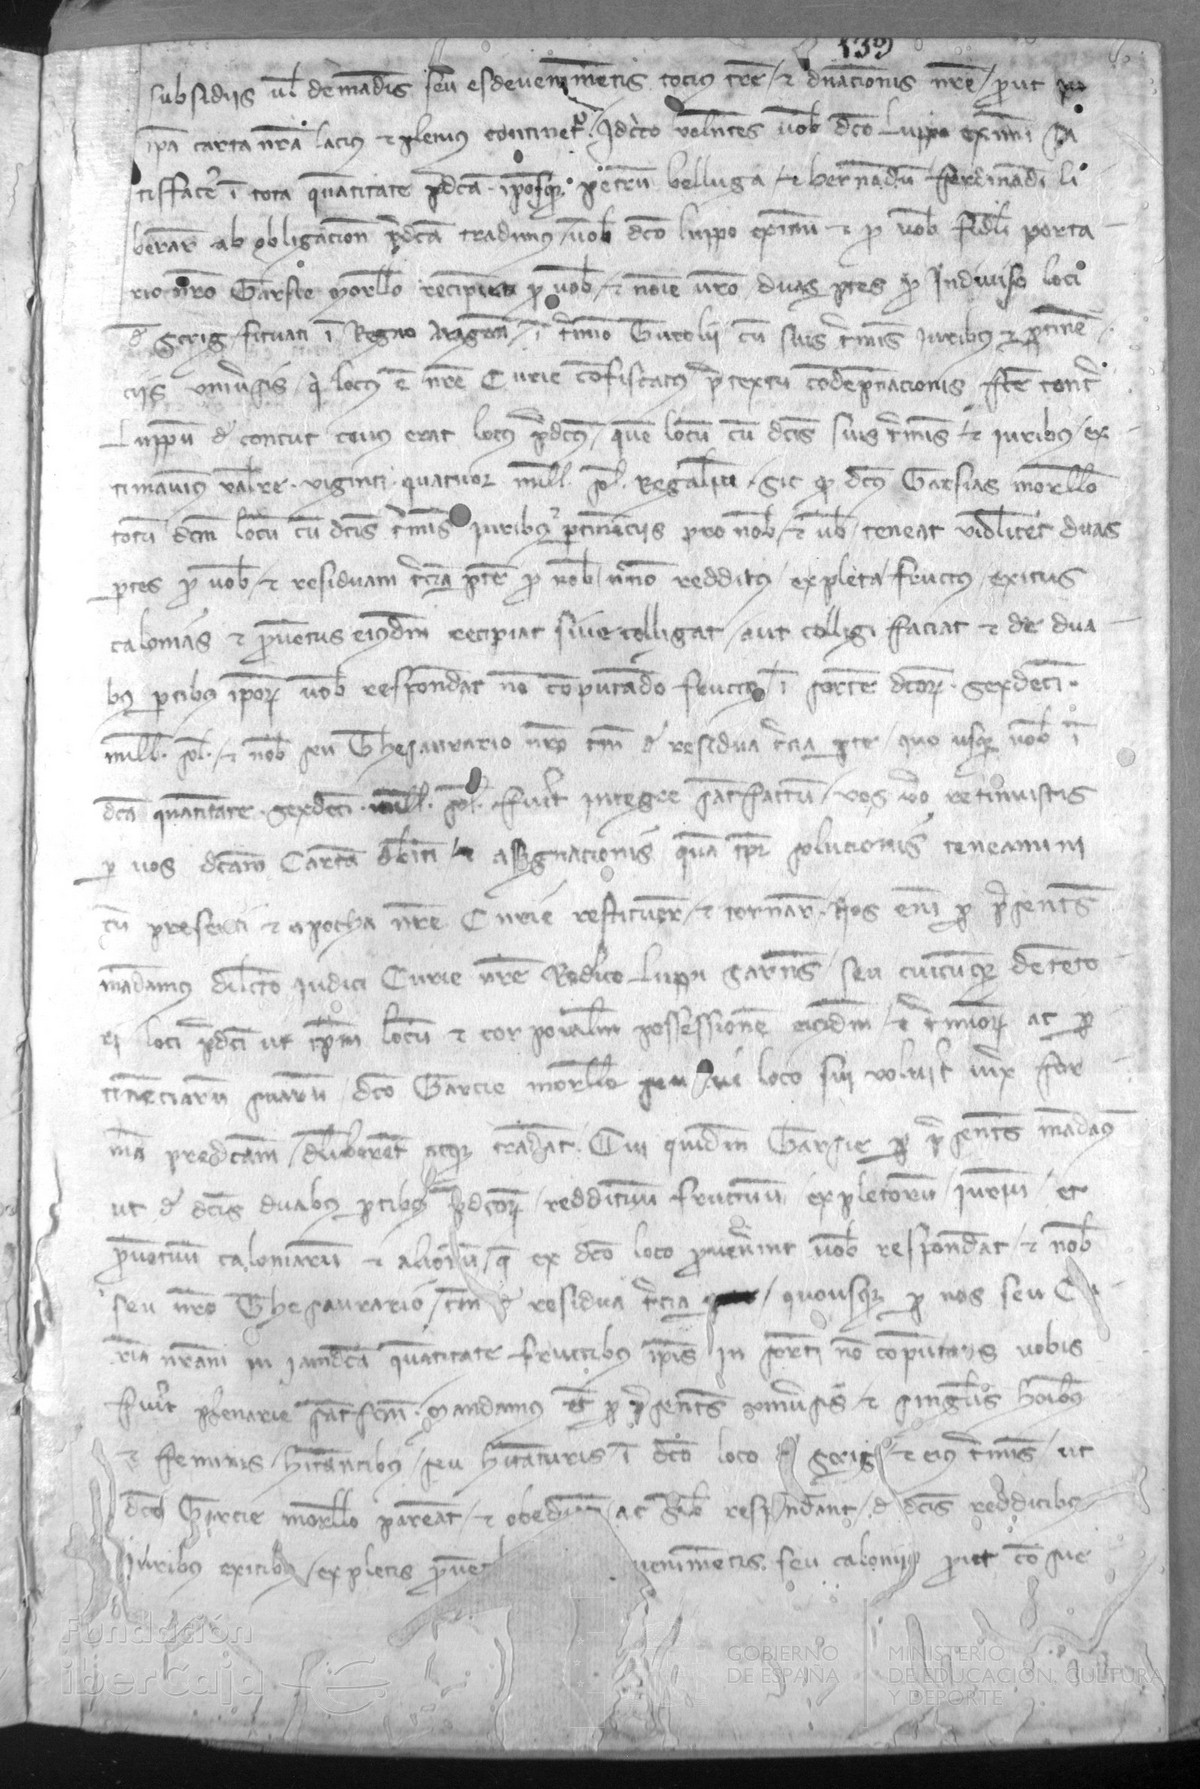 139
subsidiis vl demadis seu esdevenimetis tocius tre / et dnacionis nre / prout in
ipa carta nra lacius et plenius continet / Idcirco volentes vob dco Luppo eximini sa
tisfacere i tota quantitate pdca. iposq petru belluga / et bernadu fferdinadi li
berar ab obligacion pdca tradimus / vob dco luppo eximini et p vob fideli porta
rio nro Garsie morello recipienti p vob / et noie vro duas ptes p Indiviso loci
d Serig / situati i Regno Aragon / i tmio Gurolii cu suis tmis iuribus et ptine
ciis univsis / qi locus e nre Curie confiscatus ptextu condepnacionis fce cont
Luppu d contut cuius erat locus pdcus / que locu cu dcis suis tmis / et iuribus / ex
timavimus valere. viginti. quatuor mill. sol. Regaliu. sic qd dcus Garsias morello
totu dcm locu cu dcis tmis iuribus ptinenciis pro nob / et vob / teneat videlicet duas
ptes p vob / et residuam tciam pte p nob / nno redditus / expleta / fructus / exitus
calonias et pventus eiusdm recipiat sive colligat / aut colligi faciat et de dua
bus ptibus ipor vob respondat no computado fructus i sorte dcor. sexdeci.
mill. sol. et nob seu Thesaurario nro tm d residua tcia pte / quo usq vob i
dca quantitate. sexdeci. mill. sol. fuit integre satisfactu / vos vo retinuistis
p vos dcam Carta debiti / et assignacionis qua tpe solucionis teneamini
cu presenti et apocha nre Curie restituer / et tornar. Nos eni p psentes
madamus dilcto iudici Curie nre Rodico Luppi sarnes / seu cuicuq detento
ri loci pdci ut ipm locu et corporalem possessione eiusdm / et tmior ac p
tinenciaru suaru / dco Garcie morello seu cui loco sui voluit iux for
ma predcam / deliberet atq tradat. Cui quidem Garsie p psentes madam
ut d dcis duabus ptibus pdcor / reddituu fructuu / expletoru / iuriu / et
pventuu caloniaru et alioru / q ex dco loco pvenint vob respondat / et nob
seu nro Thesaurario / tm d residua tcia pte / quousq p nos seu Cu
ria nram in iamdca quantitate fructibus ipis in sorti no computatis vobis
fuit plenarie satisfcm. Mandamus et p psentes univsis et singlis hoibus
et feminis / hitantibus / seu hitaturis i dco loco d serig / et eius tmis / ut
dco Garcie morello pareat / et obediant ac sibi respondant / d dcis redditibus
iuribus exitibus / expletis pvent venimetis. seu caloniis prout consue
Fundación
iberCaja
GOBIERNO
DE ESPAÑA
MINISTERIO
DE EDUCACIÓN, CULTURA
Y DEPORTE